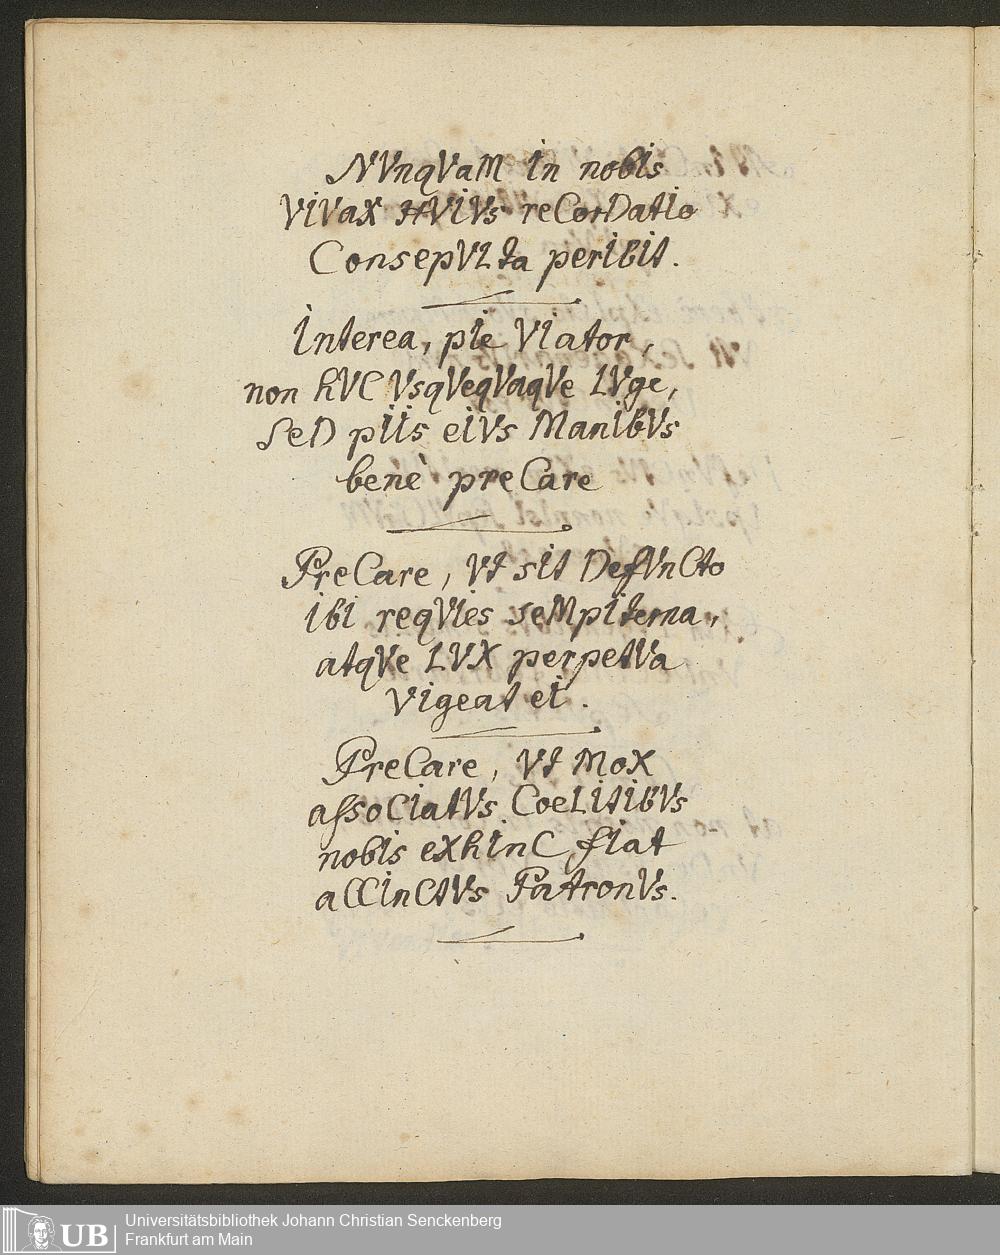 NVnqVaM in nobIs
VIVaX HVIVs reCorDatIo
ConsepVLta perIbIt.
Interea, pIe VIator,
non hVC VsqVeqVaqVe LVge,
SeD pIIs eIVs ManIbVs
benè preCare
PreCare, Vt sIt DefVnCto
IbI reqVIes seMpIterna,
atqVe LVX perpetVa
VIgeat eI.
PreCare, Vt MoX
assoCIatVs CoeLItIbVs
nobIs eXhInC fIat
aCCInCtVs PatronVs.
UB
Universitätsbibliothek Johann Christian Senckenberg
Frankfurt am Main